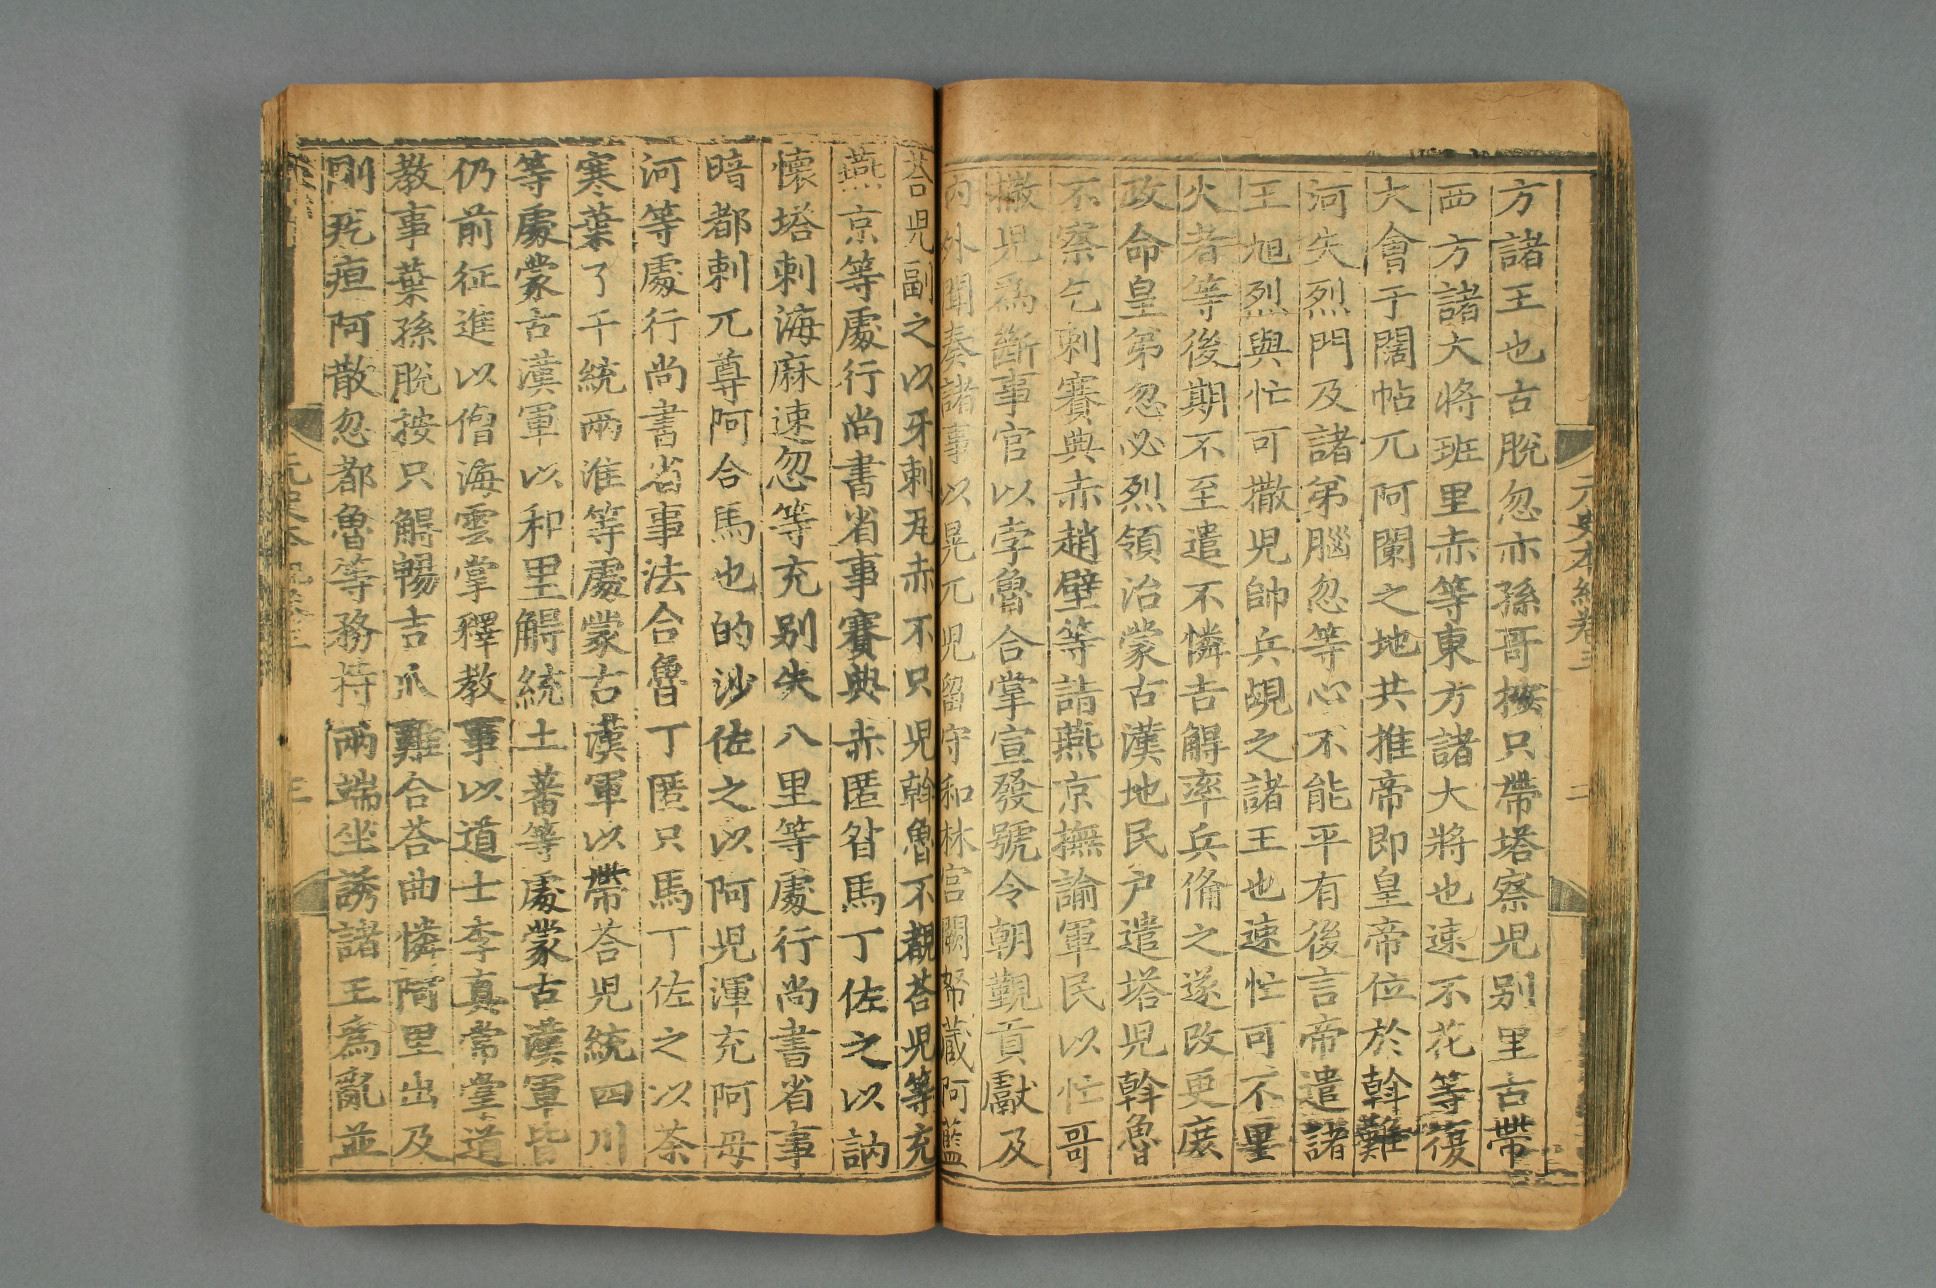 元史本紀卷三
二
方諸王也古脫忽亦孫哥按只帶塔察児别里古帶
西方諸大将班里赤等東方諸大將也速不花等復
大㑹于闊帖兀阿闌之地共推帝即皇帝位於斡難
河失烈門及諸弟腦忽等心不能平有後言帝遣諸
王旭烈與忙可撒児帥兵覘之諸王也速忙可不里
火者等後期不至遣不憐吉䚟率兵俻之遂改更庶
政命皇弟忽必烈領治蒙古漢地民户遣塔児斡魯
不察乞剌賽典赤趙璧等詣燕京撫諭軍民以忙哥
撒児爲斷事官以孛魯合掌宣發號令朝覲貢獻及
内外聞奏諸事以晃兀児留守和林宫闕帑藏阿藍
荅児副之以牙剌瓦赤不只児斡魯不覩荅児等充
燕京等處行尚書省事賽典赤匿昝馬丁佐之以訥
懐塔剌海麻速忽等充别失八里等處行尚書省事
暗都剌兀尊阿合馬也的沙佐之以阿児渾充阿母
河等處行尚書省事法合魯丁匿只馬丁佐之以茶
寒葉了干統兩淮等處蒙古漢軍以帶荅児統四川
等處蒙古漢軍以和里䚟統土蕃等處蒙古漢軍皆
仍前征進以僧海雲掌釋教事以道士李真常掌道
教事葉孫脫按只䚟暢吉爪難合荅曲憐阿里出及
剛疙疸阿散忽都魯等務持兩端坐誘諸王爲亂並
元史本紀卷三
三